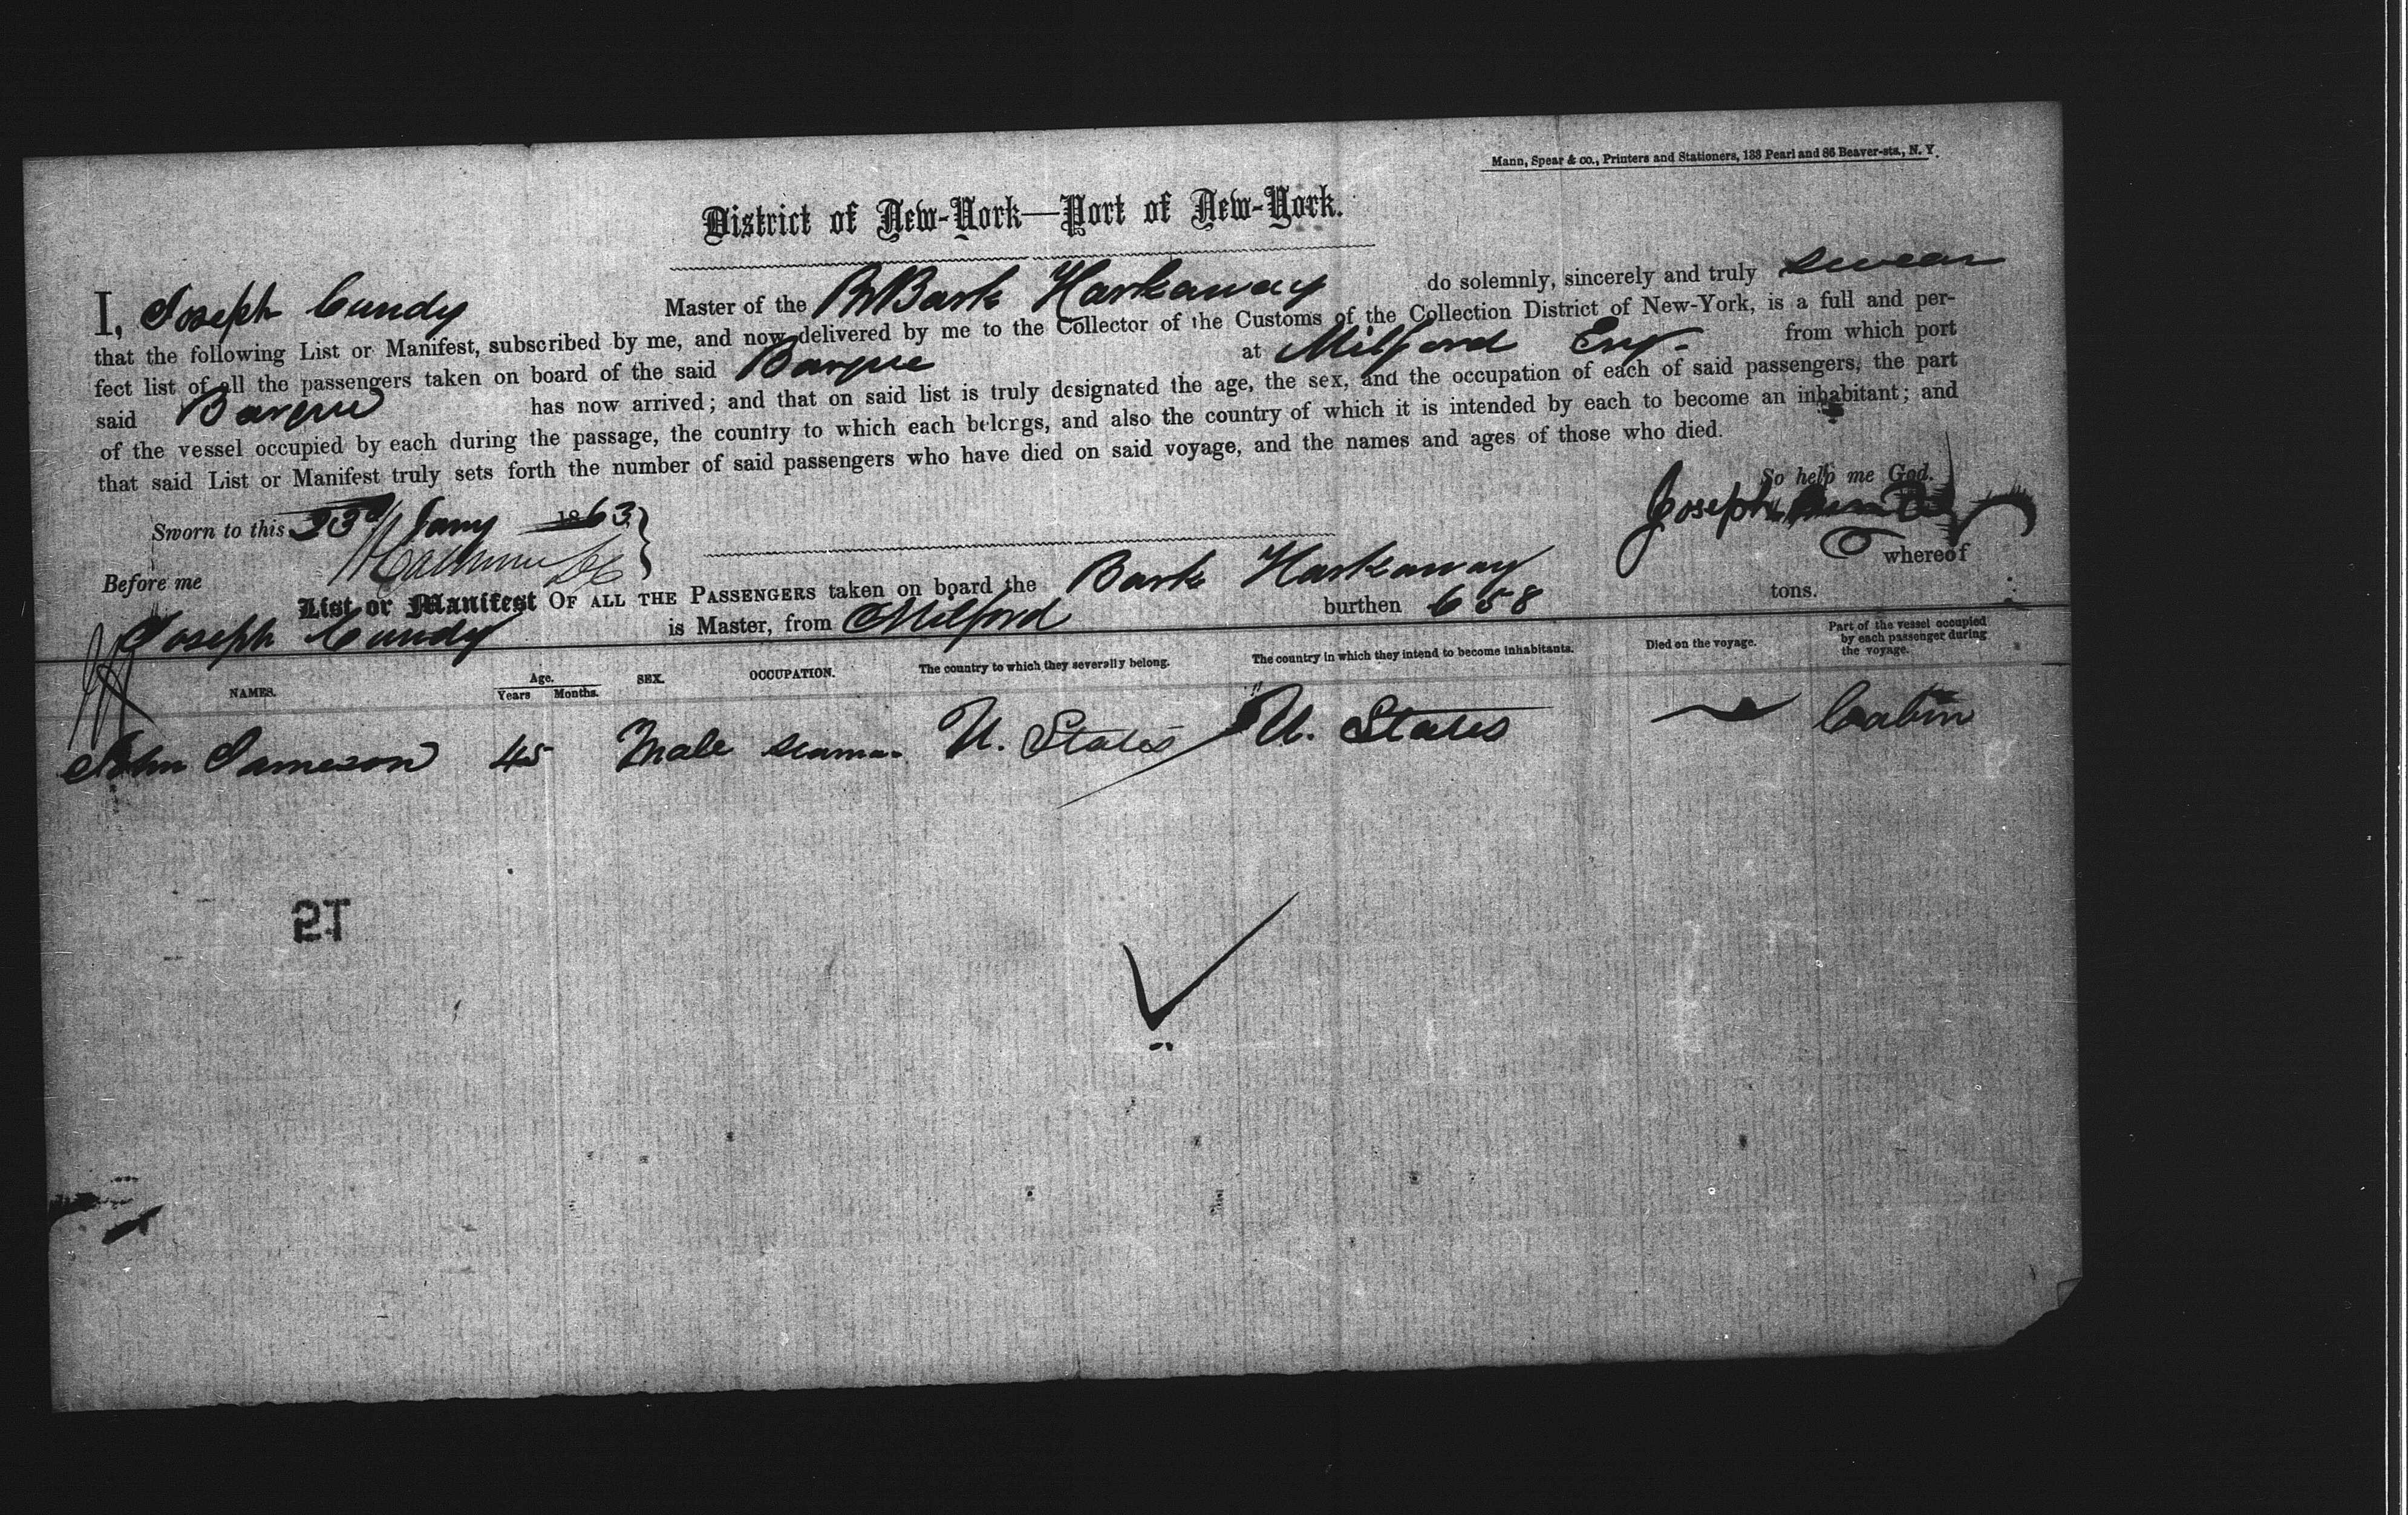 Mann, Spear & co., Printers and Stationers, 133 Pearl and 86 Beaver-sts., N. Y.
District of New-York—Port of New-York.
I, Joseph Cundy Master of the Br Bark Harkaway do solemnly, sincerely and truly swear
that the following List or Manifest, subscribed by me, and now delivered by me to the Collector of the Customs of the Collection District of New-York, is a full and per-
fect list of all the passengers taken on board of the said Barque at Milford Eng. from which port
said Barque has now arrived; and that on said list is truly designated the age, the sex, and the occupation of each of said passengers, the part
of the vessel occupied by each during the passage, the country to which each belongs, and also the country of which it is intended by each to become an inhabitant; and
that said List or Manifest truly sets forth the number of said passengers who have died on said voyage, and the names and ages of those who died.
So help me God.
Sworn to this 23d Jany 1863 Joseph Cundy
Before me
List or Manifest OF ALL THE PASSENGERS taken on board the Bark Harkaway whereof
Joseph Cundy is Master, from Milford burthen 658 tons.
NAMES. Age. Years Months. SEX. OCCUPATION. The country to which they severally belong. The country in which they intend to become inhabitants. Died on the voyage. Part of the vessel occupied by each passenger during the voyage.
John Jameson 45 Male seaman U. States U. States Cabin